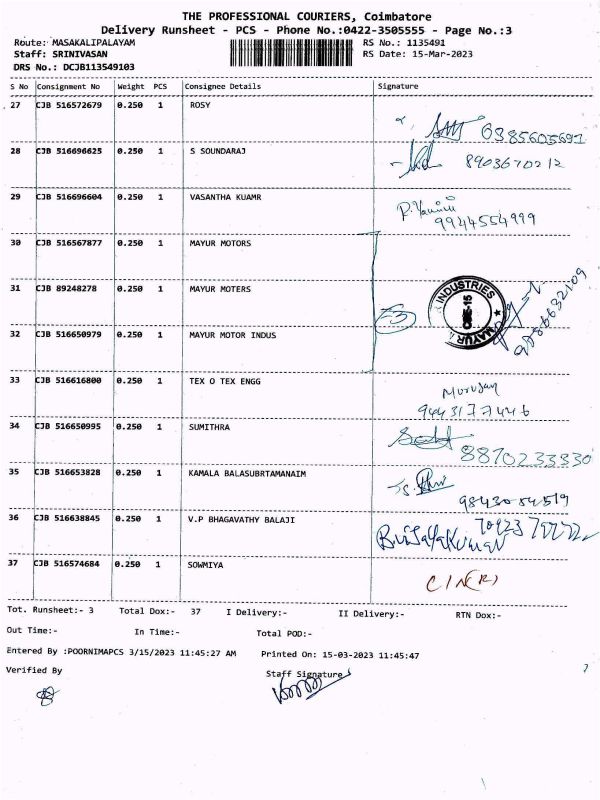 THE PROFESSIONAL COURIERS, Coimbatore
Delivery Runsheet - PCS - Phone No.:0422-3505555 - Page No.:3
Route: MASAKALIPALAYAM RS No.: 1135491
Staff: SRINIVASAN RS Date: 15-Mar-2023
DRS No.: DCJB113549103
S No Consignment No Weight PCS Consignee Details Signature
27 CJB 516572679 0.250 1 ROSY
6385605691
28 CJB 516696625 0.250 1 S SOUNDARAJ
8903670212
29 CJB 516696604 0.250 1 VASANTHA KUAMR
9944554999
30 CJB 516567877 0.250 1 MAYUR MOTORS
31 CJB 89248278 0.250 1 MAYUR MOTERS
INDUSTRIES
CBE-15
MAYUR
32 CJB 516650979 0.250 1 MAYUR MOTOR INDUS
33 CJB 516616800 0.250 1 TEX O TEX ENGG
Murugan
9443177446
34 CJB 516650995 0.250 1 SUMITHRA
8870233830
35 CJB 516653828 0.250 1 KAMALA BALASUBRTAMANAIM
9843084519
36 CJB 516638845 0.250 1 V.P BHAGAVATHY BALAJI
37 CJB 516574684 0.250 1 SOWMIYA
Tot. Runsheet:- 3 Total Dox:- 37 I Delivery:- II Delivery:- RTN Dox:-
Out Time:- In Time:- Total POD:-
Entered By :POORNIMAPCS 3/15/2023 11:45:27 AM Printed On: 15-03-2023 11:45:47
Verified By Staff Signature